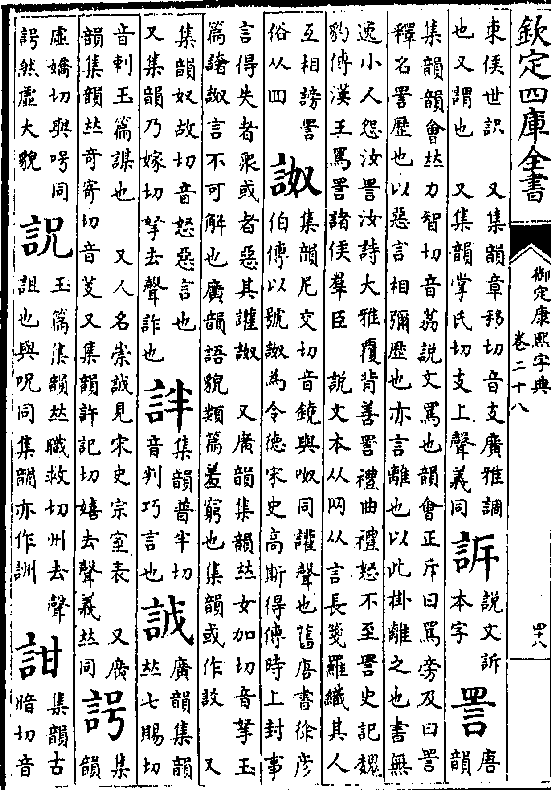 欽定四庫全書
御定康熙字典
卷二十八
四十八
東侯世訳 又集韻章移切音支廣雅調
也又謂也 又集韻掌氏切支上聲義同
訴
說文訴
本字
詈
唐
韻
集韻韻會𠀤力智切音荔說文罵也韻會正斥曰罵旁及曰詈
釋名詈歷也以惡言相彌歷也亦言離也以此掛離之也書無
逸小人怨汝詈汝詩大雅覆背善詈禮曲禮怒不至詈史記魏
豹傳漢王罵詈諸侯羣臣 說文本从网从言長箋羅織其人
互相謗詈
俗从四
詉
集韻尼交切音鐃與呶同讙聲也舊唐書徐彥
伯傳以號詉為令德宋史高斯得傳時上封事
言得失者衆或者惡其讙詉 又廣韻集韻𠀤女加切音拏玉
篇譇詉言不可解也廣韻語貌類篇羞窮也集韻或作 又
集韻奴故切音怒惡言也
又集韻乃嫁切拏去聲詐也
詊
集韻普半切
音判巧言也
廣韻集韻
𠀤七賜切
音刺玉篇謀也 又人名崇 見宋史宗室表 又廣
韻集韻𠀤奇寄切音芰又集韻許記切嬉去聲義𠀤同
集
韻
虛嬌切與呺同
然虛大貌
詋
玉篇集韻𠀤職救切州去聲
詛也與呪同集韻亦作詶
詌
集韻古
暗切音